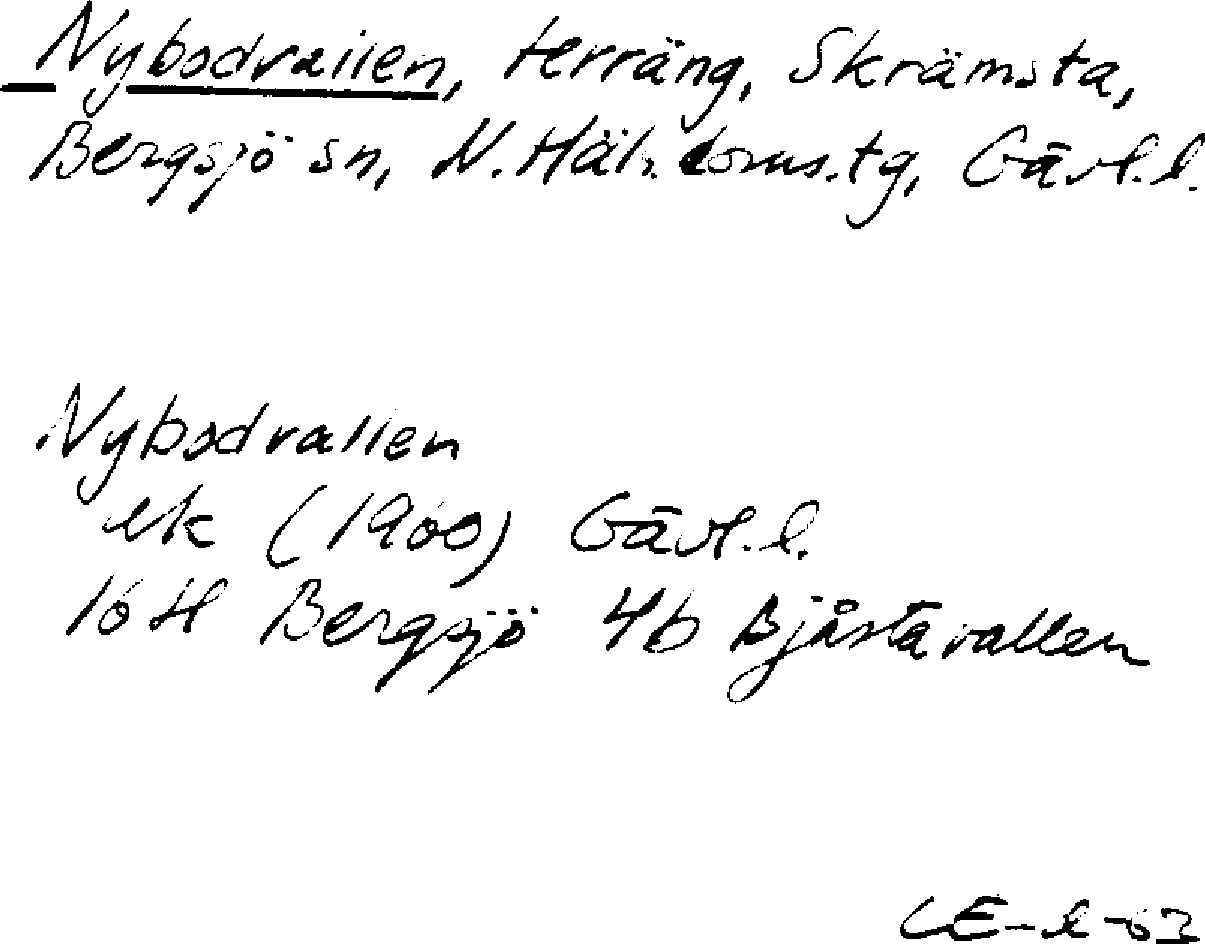 Nybodvallen, terräng, Skrämsta,
Bergsjö sn, N. Häls. doms.tg, Gävl.l.
Nybodvallen
ek (1960) Gävl.l.
16H Bergsjö 4b Bjåstavallen
LE-l-63